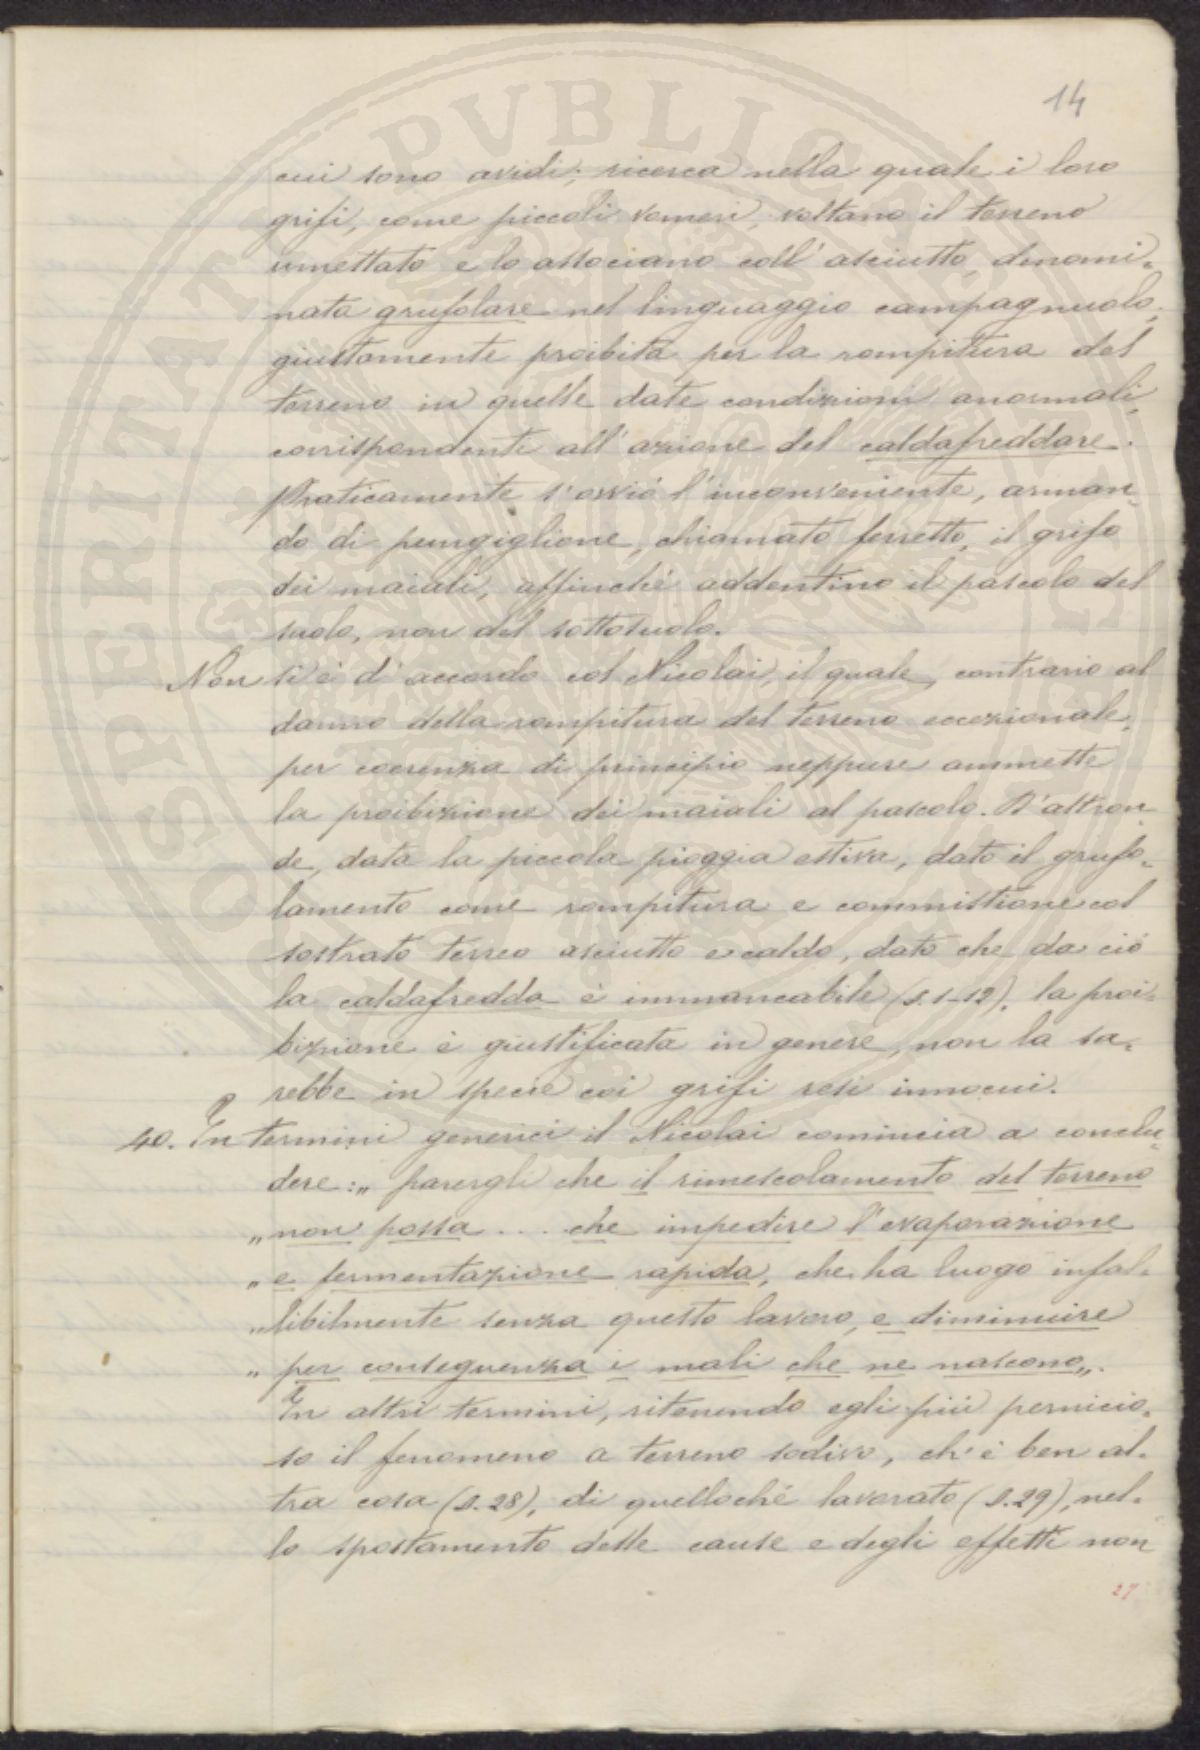 14
cui sono avidi; ricerca nella quale i loro
grifi, come piccoli vomeri, voltano il terreno
umettato e lo associano coll'asciutto, denomi-
nata grufolare nel linguaggio campagnuolo,
giustamente proibita per la rompitura del
terreno in quelle date condizioni anormali,
corrispondenti all'azione del caldafreddare.
Praticamente s'ovviò l'inconveniente, arman-
do di pungiglione, chiamato ferretto, il grifo
dei maiali, affinché addentino il pascolo del
suolo, non del sottosuolo.
Non si è d'accordo col Nicolai, il quale, contrario al
danno della rompitura del terreno eccezionale,
per coerenza di principio neppure ammette
la proibizione dei maiali al pascolo. D'altron-
de, data la piccola pioggia estiva, dato il grufo-
lamento come rompitura e commistione col
sostrato terreo asciutto e caldo, dato che da ciò
la caldafredda è immancabile (§. 1-12), la proi-
bizione è giustificata in genere, non la sa-
rebbe in specie coi grifi resi innocui.
40. In termini generici il Nicolai comincia a conclu-
dere: „parergli che il rimescolamento del terreno
„non possa ... che impedire l'evaporazione
„e fermentazione rapida, che ha luogo infal-
„libilmente senza questo lavoro, e diminuire
„per conseguenza i mali che ne nascono„.
In altri termini, ritenendo egli più pernicio-
so il fenomeno a terreno sodivo, ch'è ben al-
tra cosa (§. 28), di quelloché lavorato (§. 29), nel-
lo spostamento delle cause e degli effetti non
27
PVBLICAE
PROSPERITATI